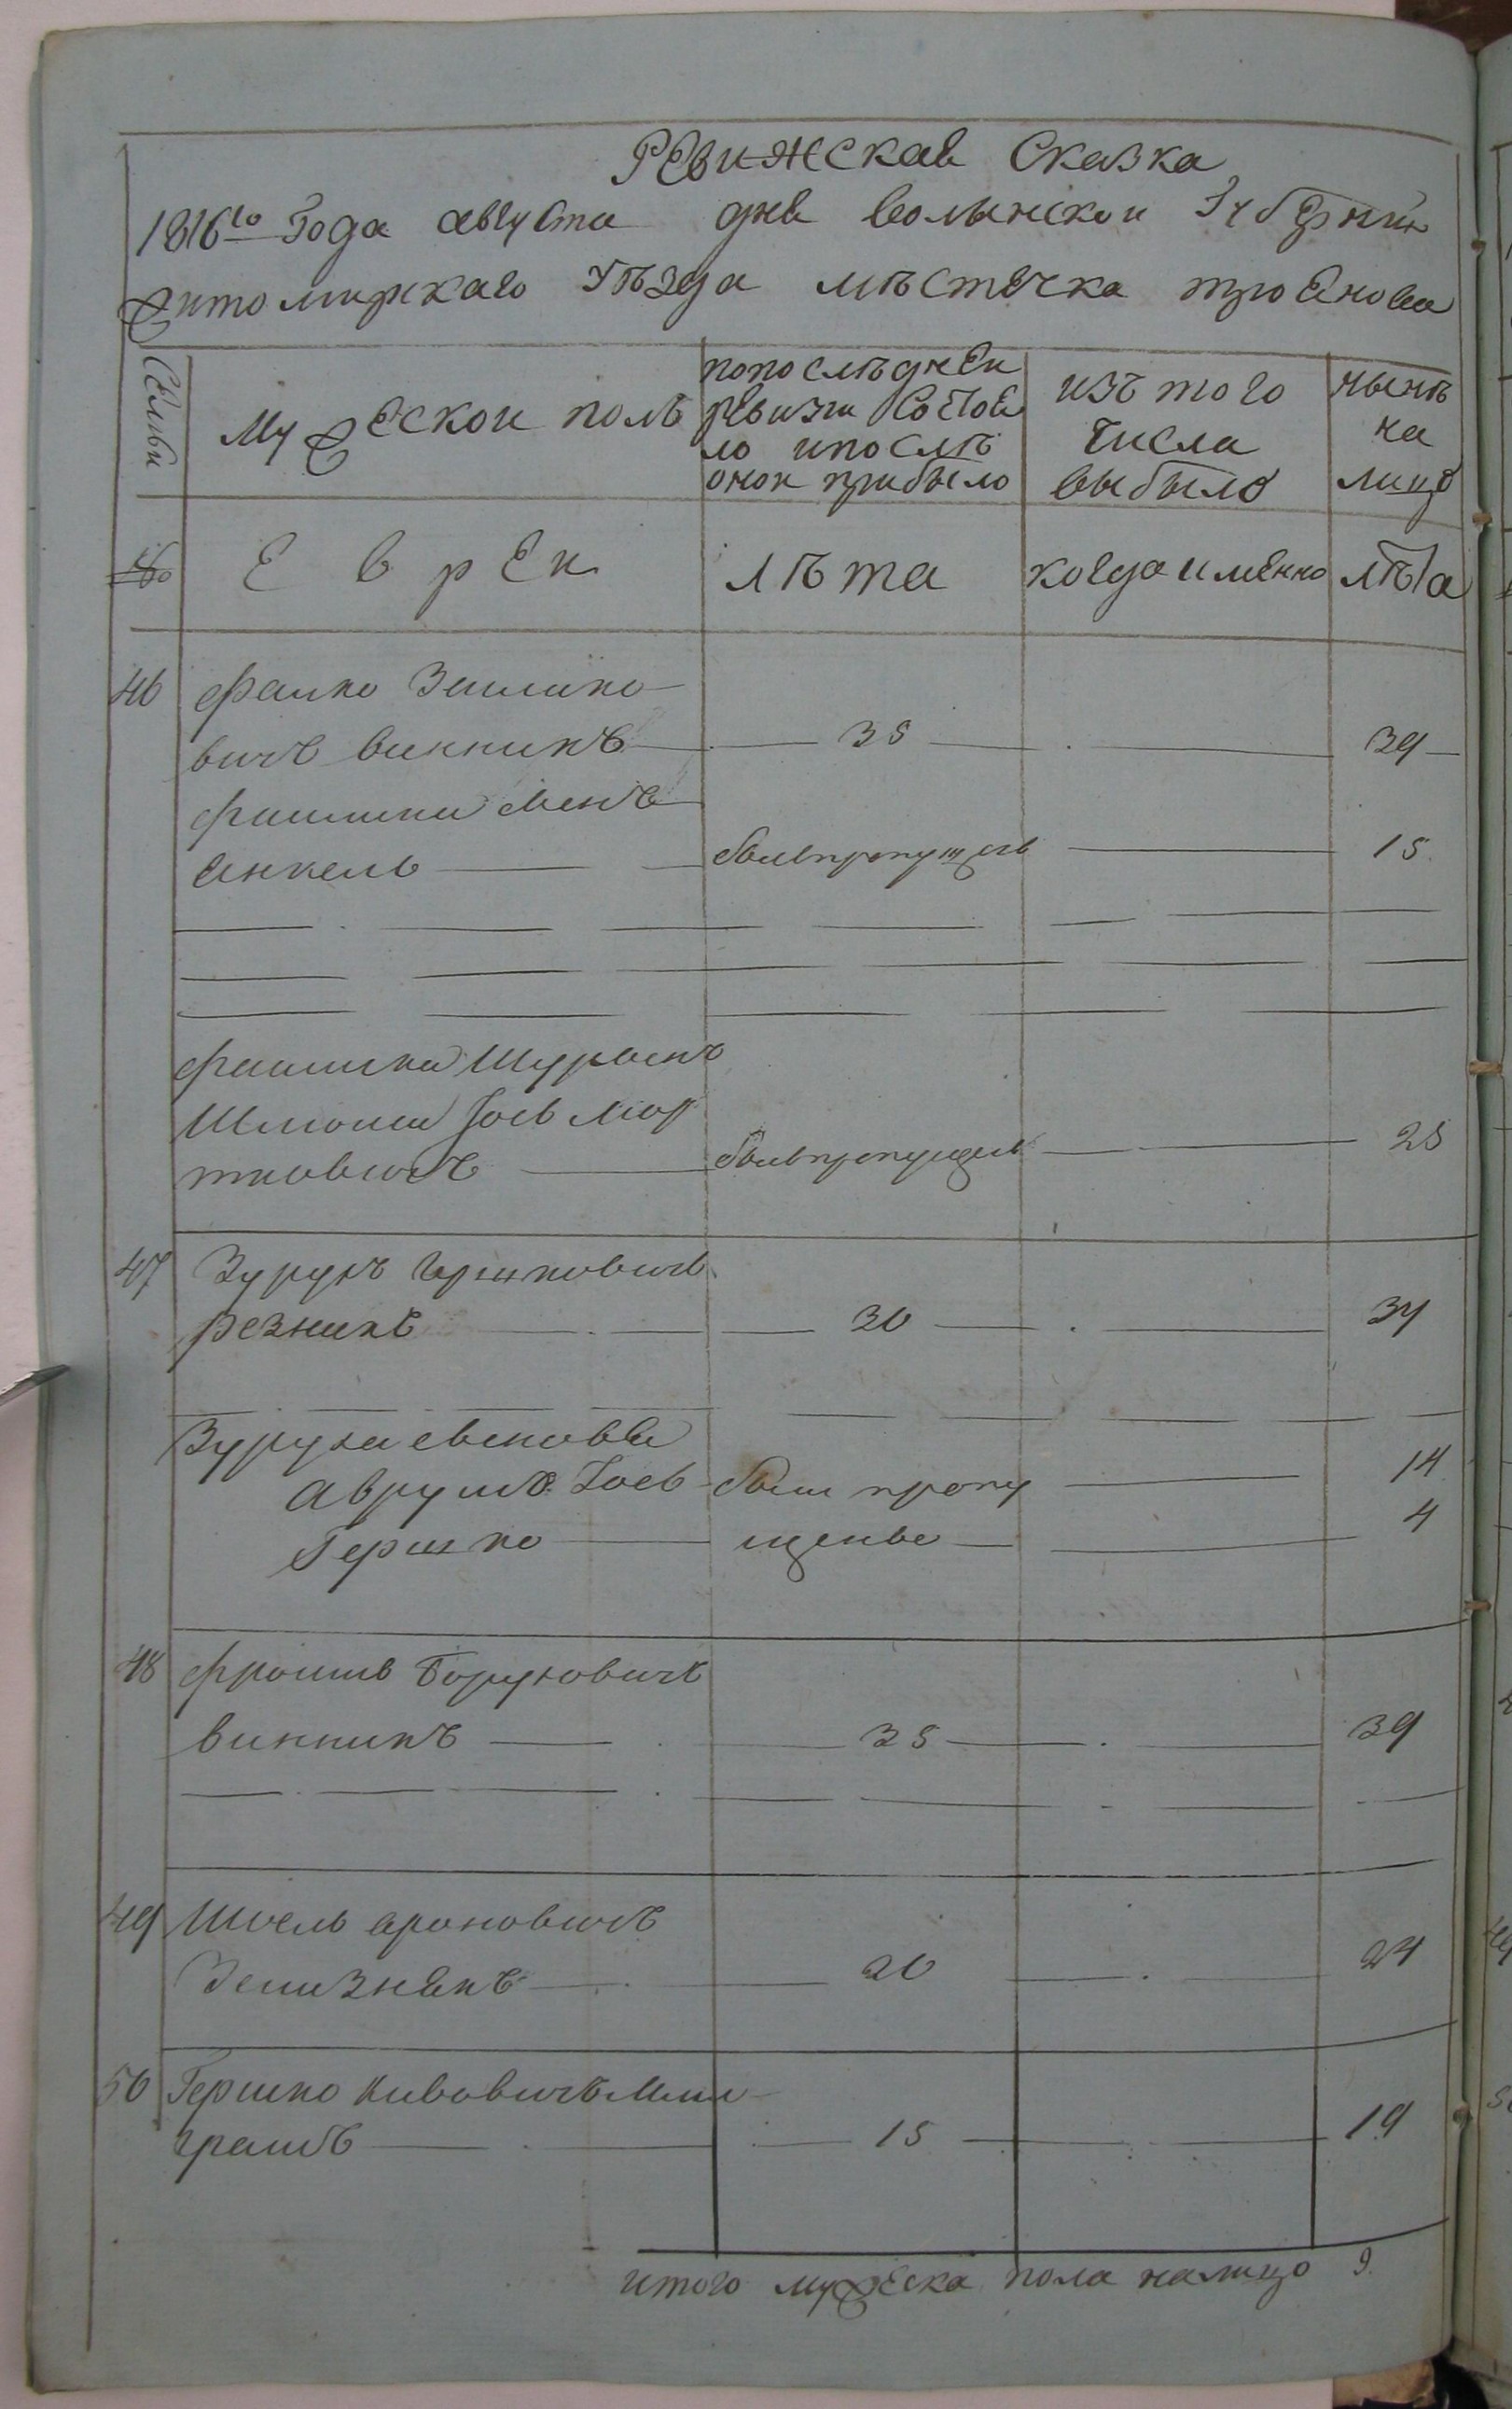 Ревижская Сказка
1816го Года августа дня волынской Губернии
житомирскаго уѣзда мѣстечка троянова
Семьи
Мужеской полъ
попослѣдней
ревизіи состоя
ло ипослѣ
оной прибыло
изъ того
числа
выбыло
нынѣ
на
лицо
№
Еврей
лѣта
когда именно
лѣта
46 фалко Зелико-
вичъ винникъ 35 39
фалика Сынъ
Янкель былъ пропущенъ 15
фалика Шурынъ
Шлиома Іось Мор
тковичъ былъ пропущенъ 25
47 Зурухъ Гершковичъ
резникъ 30 34
Зуруха сыновья
Аврумъ Іось были пропу 14
Гершко щеные 4
48 фроимъ Боруховичъ
винникъ 35 39
49 Шоель ароновичъ
Зелизнякъ 20 24
50 Гершко Кивовичъ Мил
грамъ 15 19
итого мужеска пола налицо 9